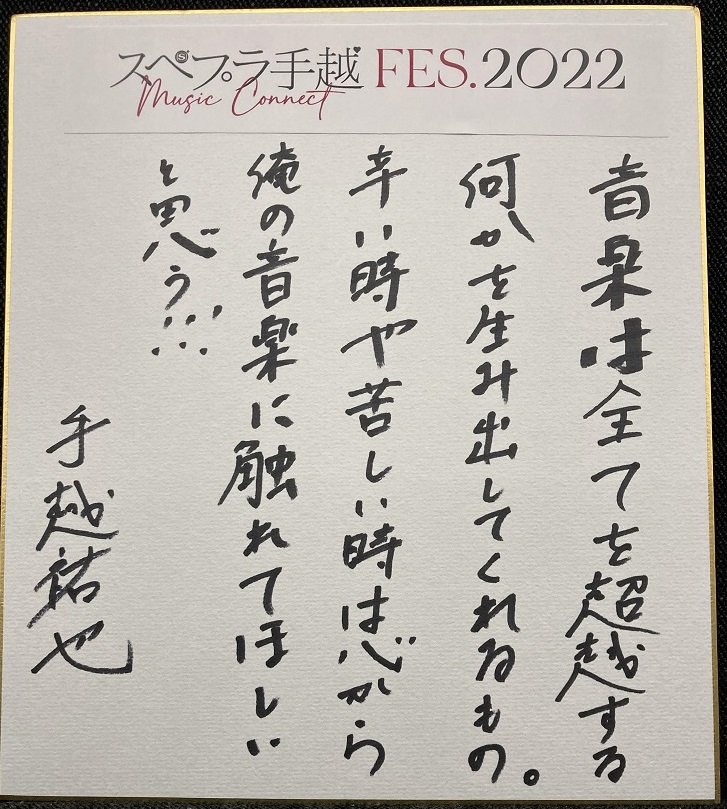 スペプラ手越 FES.2022
Music Connect
音楽は全てを超越する
何かを生み出してくれるもの。
辛い時や苦しい時は心から
俺の音楽に触れてほしい
と思う!!!
手越祐也